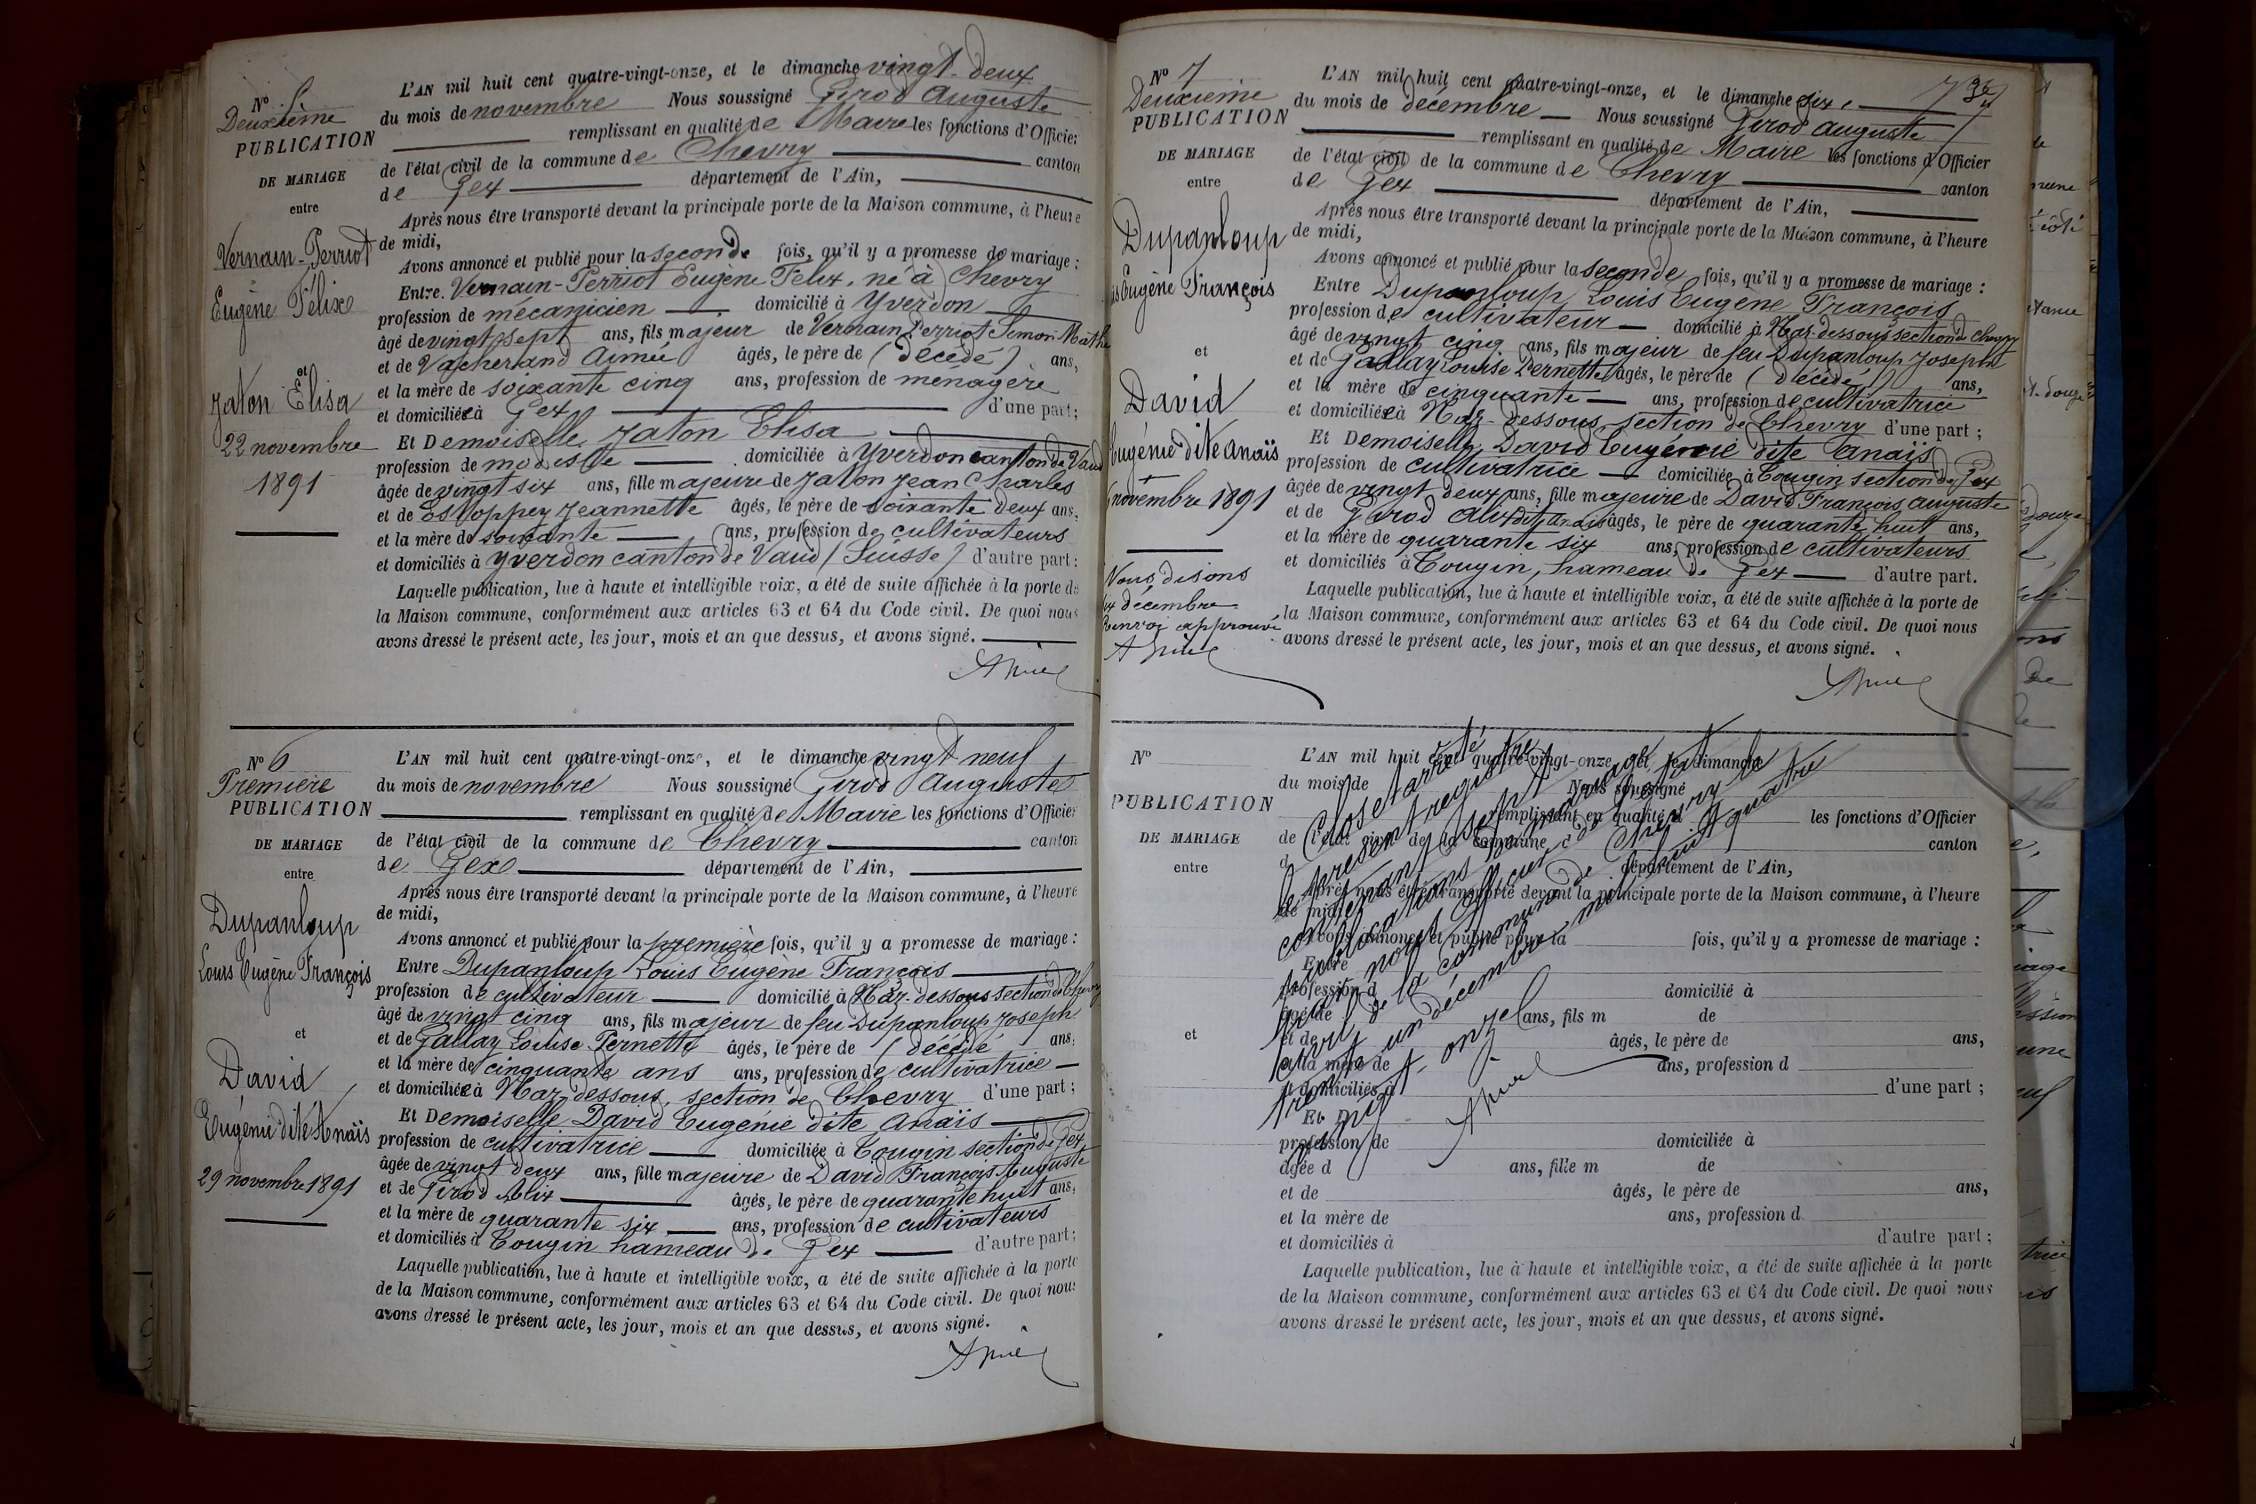 N° 5
Deuxième
PUBLICATION
DE MARIAGE
entre
Vernain-Perriot
Eugène Félix
et
Jaton Elisa
22 novembre
1891
L'AN mil huit cent quatre-vingt-onze, et le dimanche vingt-deux
du mois de novembre Nous soussigné Girod Auguste
remplissant en qualité de Maire les fonctions d'Officier
de l'état civil de la commune de Chevry canton
de Gex département de l'Ain,
Après nous être transporté devant la principale porte de la Maison commune, à l'heure
de midi,
Avons annoncé et publié pour la seconde fois, qu'il y a promesse de mariage :
Entre Vernain-Perriot Eugène Felix, né à Chevry
profession de mécanicien domicilié à Yverdon
âgé de vingt sept ans, fils majeur de Vernain Perriot Simon Mathi
et de Vacherand Aimée âgés, le père de (décédé) ans,
et la mère de soixante cinq ans, profession de ménagère
et domiciliée à Gex d'une part ;
Et Demoiselle Jaton Elisa
profession de modiste domiciliée à Yverdon canton de Vaud
âgée de vingt six ans, fille majeure de Jaton Jean Charles
et de Estoppey Jeannette âgés, le père de soixante deux ans,
et la mère de soixante ans, profession de cultivateurs
et domiciliés à Yverdon canton de Vaud (Suisse) d'autre part :
Laquelle publication, lue à haute et intelligible voix, a été de suite affichée à la porte de
la Maison commune, conformément aux articles 63 et 64 du Code civil. De quoi nous
avons dressé le présent acte, les jour, mois et an que dessus, et avons signé.
N° 6
Première
PUBLICATION
DE MARIAGE
entre
Dupanloup
Louis Eugène François
et
David
Eugénie dite Anaïs
29 novembre 1891
L'AN mil huit cent quatre-vingt-onze, et le dimanche vingt neuf
du mois de novembre Nous soussigné Girod Auguste
remplissant en qualité de Maire les fonctions d'Officier
de l'état civil de la commune de Chevry canton
de Gex département de l'Ain,
Après nous être transporté devant la principale porte de la Maison commune, à l'heure
de midi,
Avons annoncé et publié pour la première fois, qu'il y a promesse de mariage :
Entre Dupanloup Louis Eugène François
profession de cultivateur domicilié à Naz-dessous section de Chevry
âgé de vingt cinq ans, fils majeur de feu Dupanloup Joseph
et de Gallay Louise Pernette âgés, le père de (décédé ans,
et la mère de cinquante ans ans, profession de cultivatrice
et domiciliée à Naz-dessous, section de Chevry d'une part ;
Et Demoiselle David Eugénie dite Anaïs
profession de cultivatrice domiciliée à Tougin section de Gex
âgée de vingt deux ans, fille majeure de David François Auguste
et de Girod Alix âgés, le père de quarante huit ans,
et la mère de quarante six ans, profession de cultivateurs
et domiciliés à Tougin hameau de Gex d'autre part ;
Laquelle publication, lue à haute et intelligible voix, a été de suite affichée à la porte
de la Maison commune, conformément aux articles 63 et 64 du Code civil. De quoi nous
avons dressé le présent acte, les jour, mois et an que dessus, et avons signé.
N° 7
Deuxième
PUBLICATION
DE MARIAGE
entre
Dupanloup
is Eugène François
et
David
Eugénie dite Anaïs
novembre 1891
Nous disons
six décembre
Renvoi approuvé
L'AN mil huit cent quatre-vingt-onze, et le dimanche six
du mois de décembre Nous soussigné Girod Auguste
remplissant en qualité de Maire les fonctions d'Officier
de l'état civil de la commune de Chevry canton
de Gex département de l'Ain,
Après nous être transporté devant la principale porte de la Maison commune, à l'heure
de midi,
Avons annoncé et publié pour la seconde fois, qu'il y a promesse de mariage :
Entre Dupanloup Louis Eugène François
profession de cultivateur domicilié à Naz-dessous section de Chevry
âgé de vingt cinq ans, fils majeur de feu Dupanloup Joseph
et de Gallay Louise Pernette âgés, le père de (décédé) ans,
et la mère de cinquante ans, profession de cultivatrice
et domiciliée à Naz-dessous, section de Chevry d'une part ;
Et Demoiselle David Eugénie dite Anaïs
profession de cultivatrice domiciliée à Tougin section de Gex
âgée de vingt deux ans, fille majeure de David François Auguste
et de Girod Alix dite Anaïs âgés, le père de quarante huit ans,
et la mère de quarante six ans, profession de cultivateurs
et domiciliés à Tougin, hameau de Gex d'autre part.
Laquelle publication, lue à haute et intelligible voix, a été de suite affichée à la porte de
la Maison commune, conformément aux articles 63 et 64 du Code civil. De quoi nous
avons dressé le présent acte, les jour, mois et an que dessus, et avons signé.
N°
PUBLICATION
DE MARIAGE
entre
et
L'AN mil huit cent quatre-vingt-onze, et le dimanche
du mois de Nous soussigné
remplissant en qualité d les fonctions d'Officier
de l'état civil de la commune d canton
d département de l'Ain,
Après nous être transporté devant la principale porte de la Maison commune, à l'heure
de midi,
Avons annoncé et publié pour la fois, qu'il y a promesse de mariage :
Entre
profession d domicilié à
âgé de ans, fils m de
et de âgés, le père de ans,
et la mère de ans, profession d
et domiciliés à d'une part ;
Et D
profession de domiciliée à
âgée d ans, fille m de
et de âgés, le père de ans,
et la mère de ans, profession d
et domiciliés à d'autre part ;
Laquelle publication, lue à haute et intelligible voix, a été de suite affichée à la porte
de la Maison commune, conformément aux articles 63 et 64 du Code civil. De quoi nous
avons dressé le présent acte, les jour, mois et an que dessus, et avons signé.
Clos et arrêté
le présent registre
contenant sept
publications de mariage
par nous officier de l'état
civil de la commune de Chevry le
trente un décembre mil huit cent quatre
vingt-onze